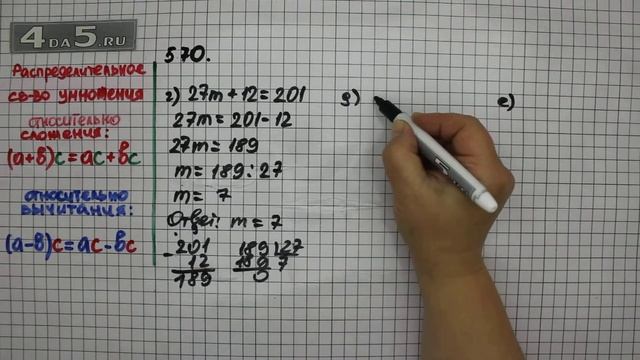 4DA5.RU
Распределительное
св-во умножения
относительно
сложения:
(а+в)с=ас+вс
относительно
вычитания:
(а-в)с=ас-вс
570.
г) 27m+12=201
27m=201-12
27m=189
m=189:27
m= 7
Ответ: m=7
-201
12
189
189 27
189 7
0
д)
е)